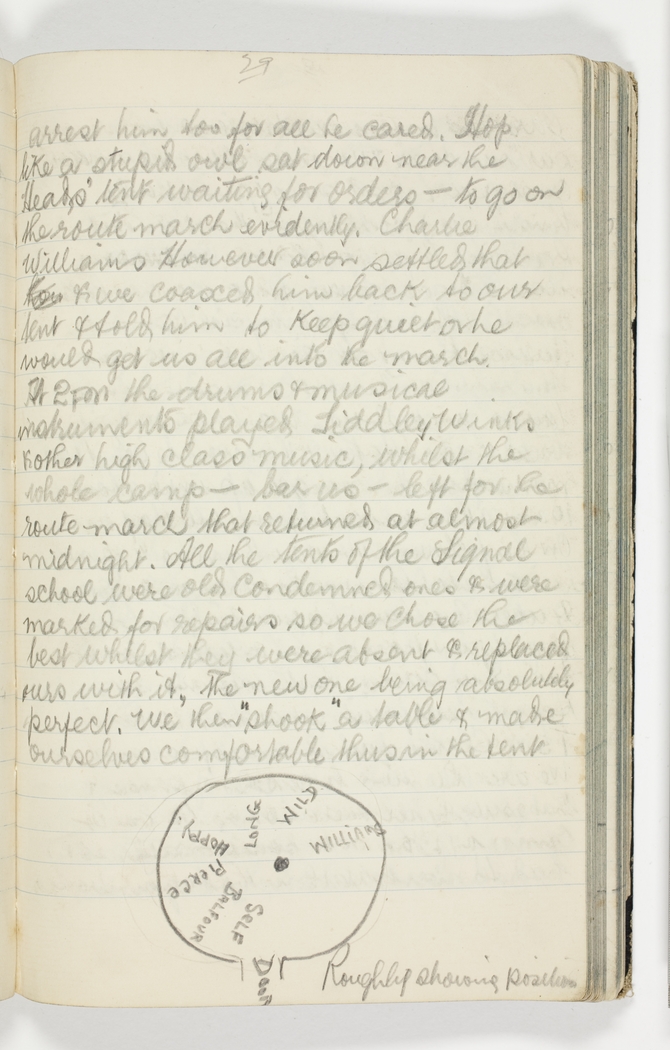 29
arrest him too for all he cared. Hop
like a stupid owl sat down near the
Heads' tent waiting for orders — to go on
the route march evidently. Charlie
Williams However soon settled that
& we coaxed him back to our
tent & told him to keep quiet or he
would get us all into the march.
At 2pm the drums & musical
instruments played Tiddley Winks
& other high class music, whilst the
whole camp — bar us — left for the
route march that returned at almost
midnight. All the tents of the Signal
school were old Condemned ones & were
marked for repairs so we chose the
best whilst they were absent & replaced
ours with it, the new one being absolutely
perfect. We then "shook" a table & made
ourselves comfortable thus in the tent
LONG
WILD
HOPPY
WILLIAMS
PIERCE
BALFOUR
SELF
DOOR
Roughly showing position